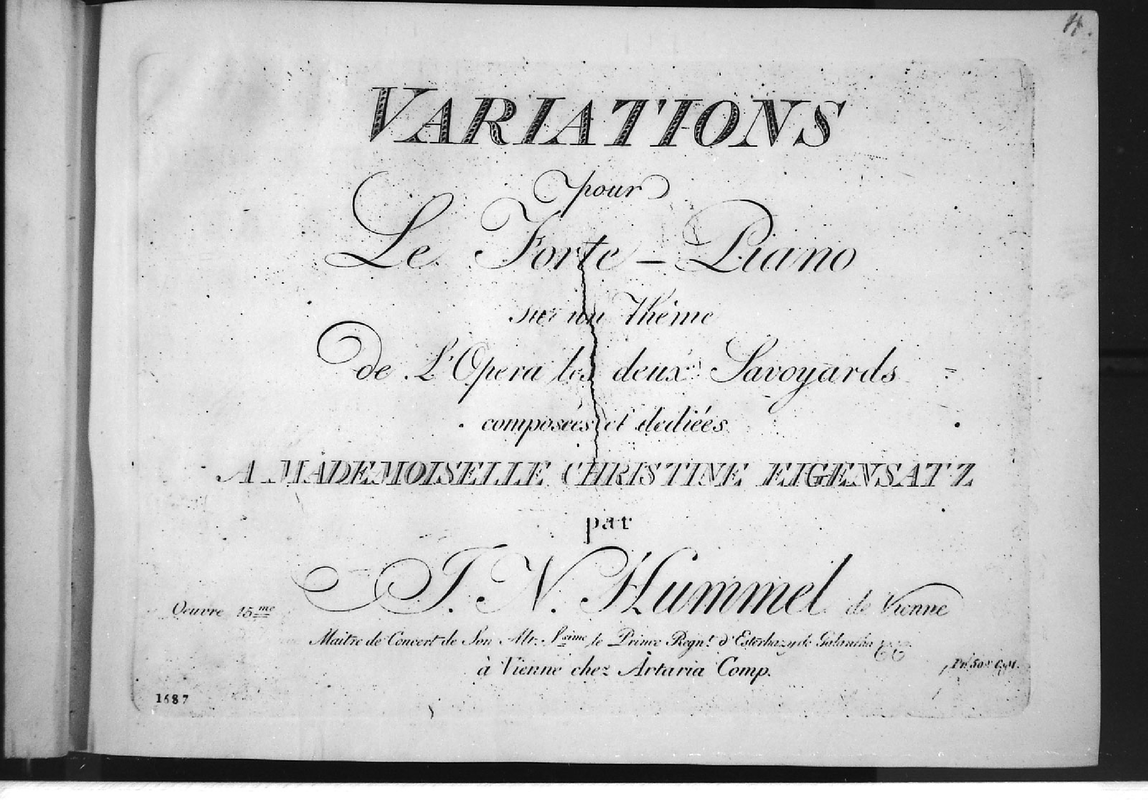 VARIATIONS
pour
Le Forte - Piano
sur un Thême
de L'Opera les deux Savoyards
composées et dediées
A MADEMOISELLE CHRISTINE EIGENSATZ
par
J. N. Hummel de Vienne
Oeuvre 15me
Maitre de Concert de Son Alt. Ssime le Prince Regnt d'Esterhazy de Galantha
à Vienne chez Artaria Comp.
1687